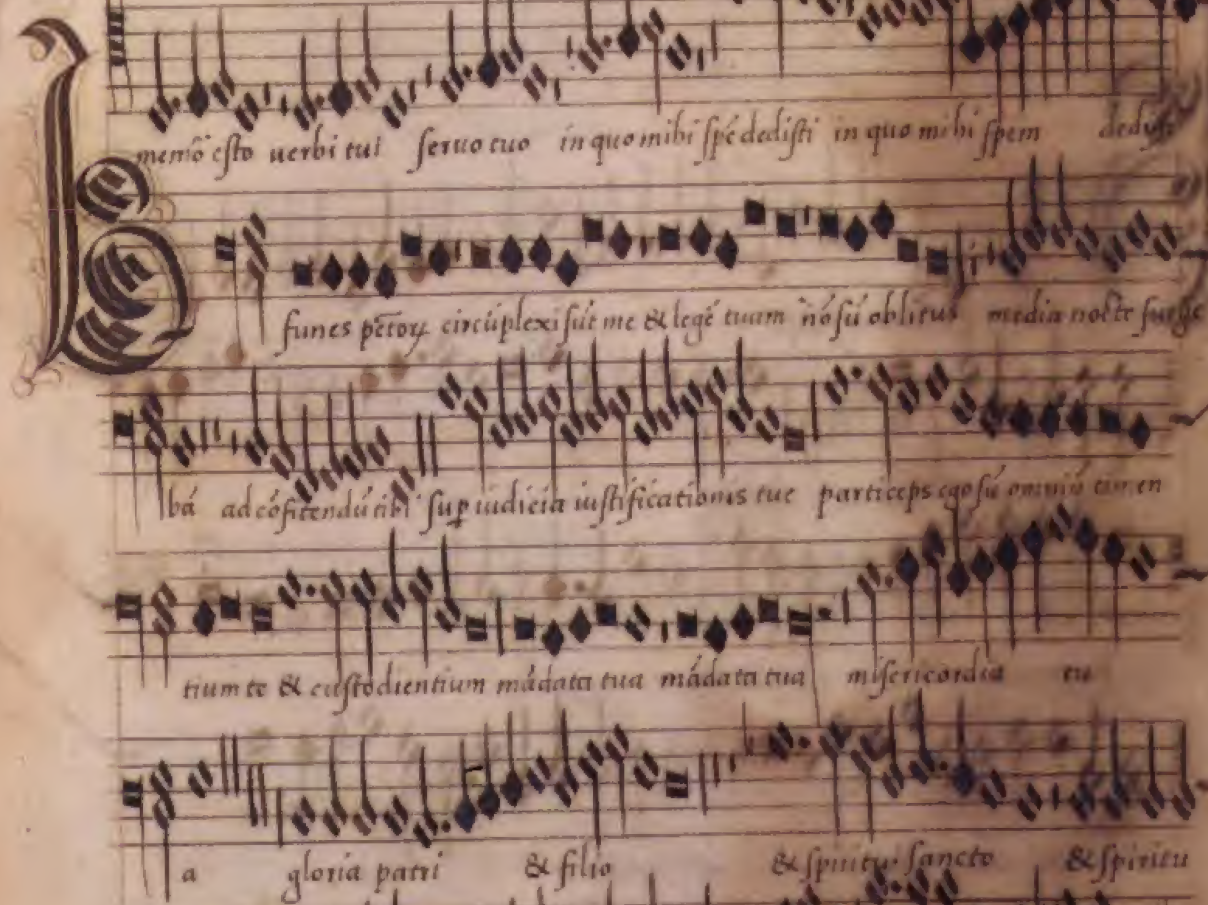 memō esto uerbi tui seruo tuo in quo mihi spē dedisti in quo mihi spem dedisti
funes circūplexi sūt me & legē tuam nō sū oblitus media nocte surge
bā ad cōfitendū tibi sup iudicia iustificationis tue particeps ego sū omniū timen
tium te & custodientium mādata tua mādata tua misericordia tu
a gloria patri & filio & spiritui sancto & spiritu